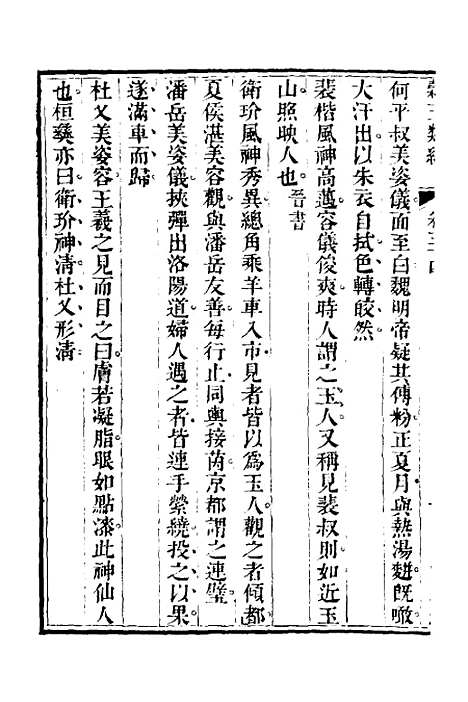 卷三四
何平叔美姿儀面至白魏明帝疑其傅粉正夏月與熱湯麪旣噉
大汗出以朱衣自拭色轉皎然
裴楷風神高邁容儀俊爽時人謂之玉人又稱見裴叔則如近玉
山照映人也 晉書
衛玠風神秀異總角乘羊車入市見者皆以爲玉人觀之者傾都
夏侯湛美容觀與潘岳友善每行止同輿接茵京都謂之連璧
潘岳美姿儀挾彈出洛陽道婦人遇之者皆連手縈繞投之以果
遂滿車而歸
杜乂美姿容王羲之見而目之曰膚若凝脂眼如點漆此神仙人
也桓彝亦曰衛玠神清杜乂形清